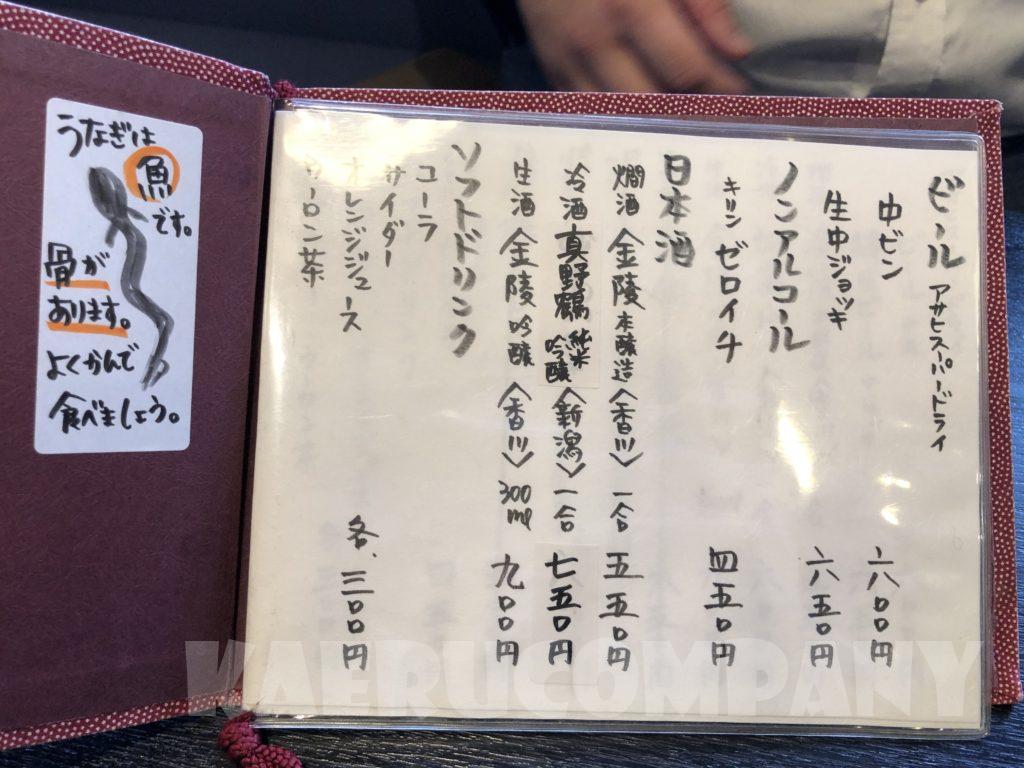 うなぎは
魚です。
骨が
あります。
よくかんで
食べましょう。
ビール アサヒスーパードライ
中ビン 六〇〇円
生中ジョッキ 六五〇円
ノンアルコール
キリン ゼロイチ 四五〇円
日本酒
燗酒 金陵 本醸造〈香川〉一合 五五〇円
冷酒 真野鶴 純米吟醸〈新潟〉一合 七五〇円
生酒 金陵 吟醸〈香川〉300ml 九〇〇円
ソフトドリンク
コーラ
サイダー
オレンジジュース 各、三〇〇円
ウーロン茶
KAERUCOMPANY